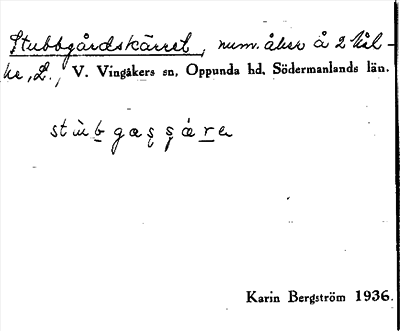 Stubbgårdskärret, num. åker å 2 Käl-
ke, L., V. Vingåkers sn, Oppunda hd, Södermanlands län.
Karin Bergström 1936.